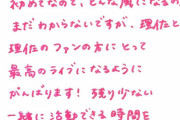 初めてなので、どんな風になるのか
まだわからないですが、理佐と
理佐のファンの方にとって
最高のライブになるように
がんばります！残り少ない
一緒に活動できる時間を